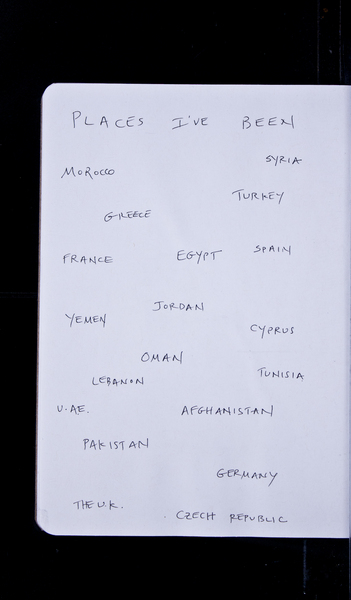 PLACES I'VE BEEN
SYRIA
MOROCCO
TURKEY
GREECE
SPAIN
FRANCE EGYPT
JORDAN
YEMEN
CYPRUS
OMAN
TUNISIA
LEBANON
U.AE. AFGHANISTAN
PAKISTAN
GERMANY
THE U.K.
CZECH REPUBLIC